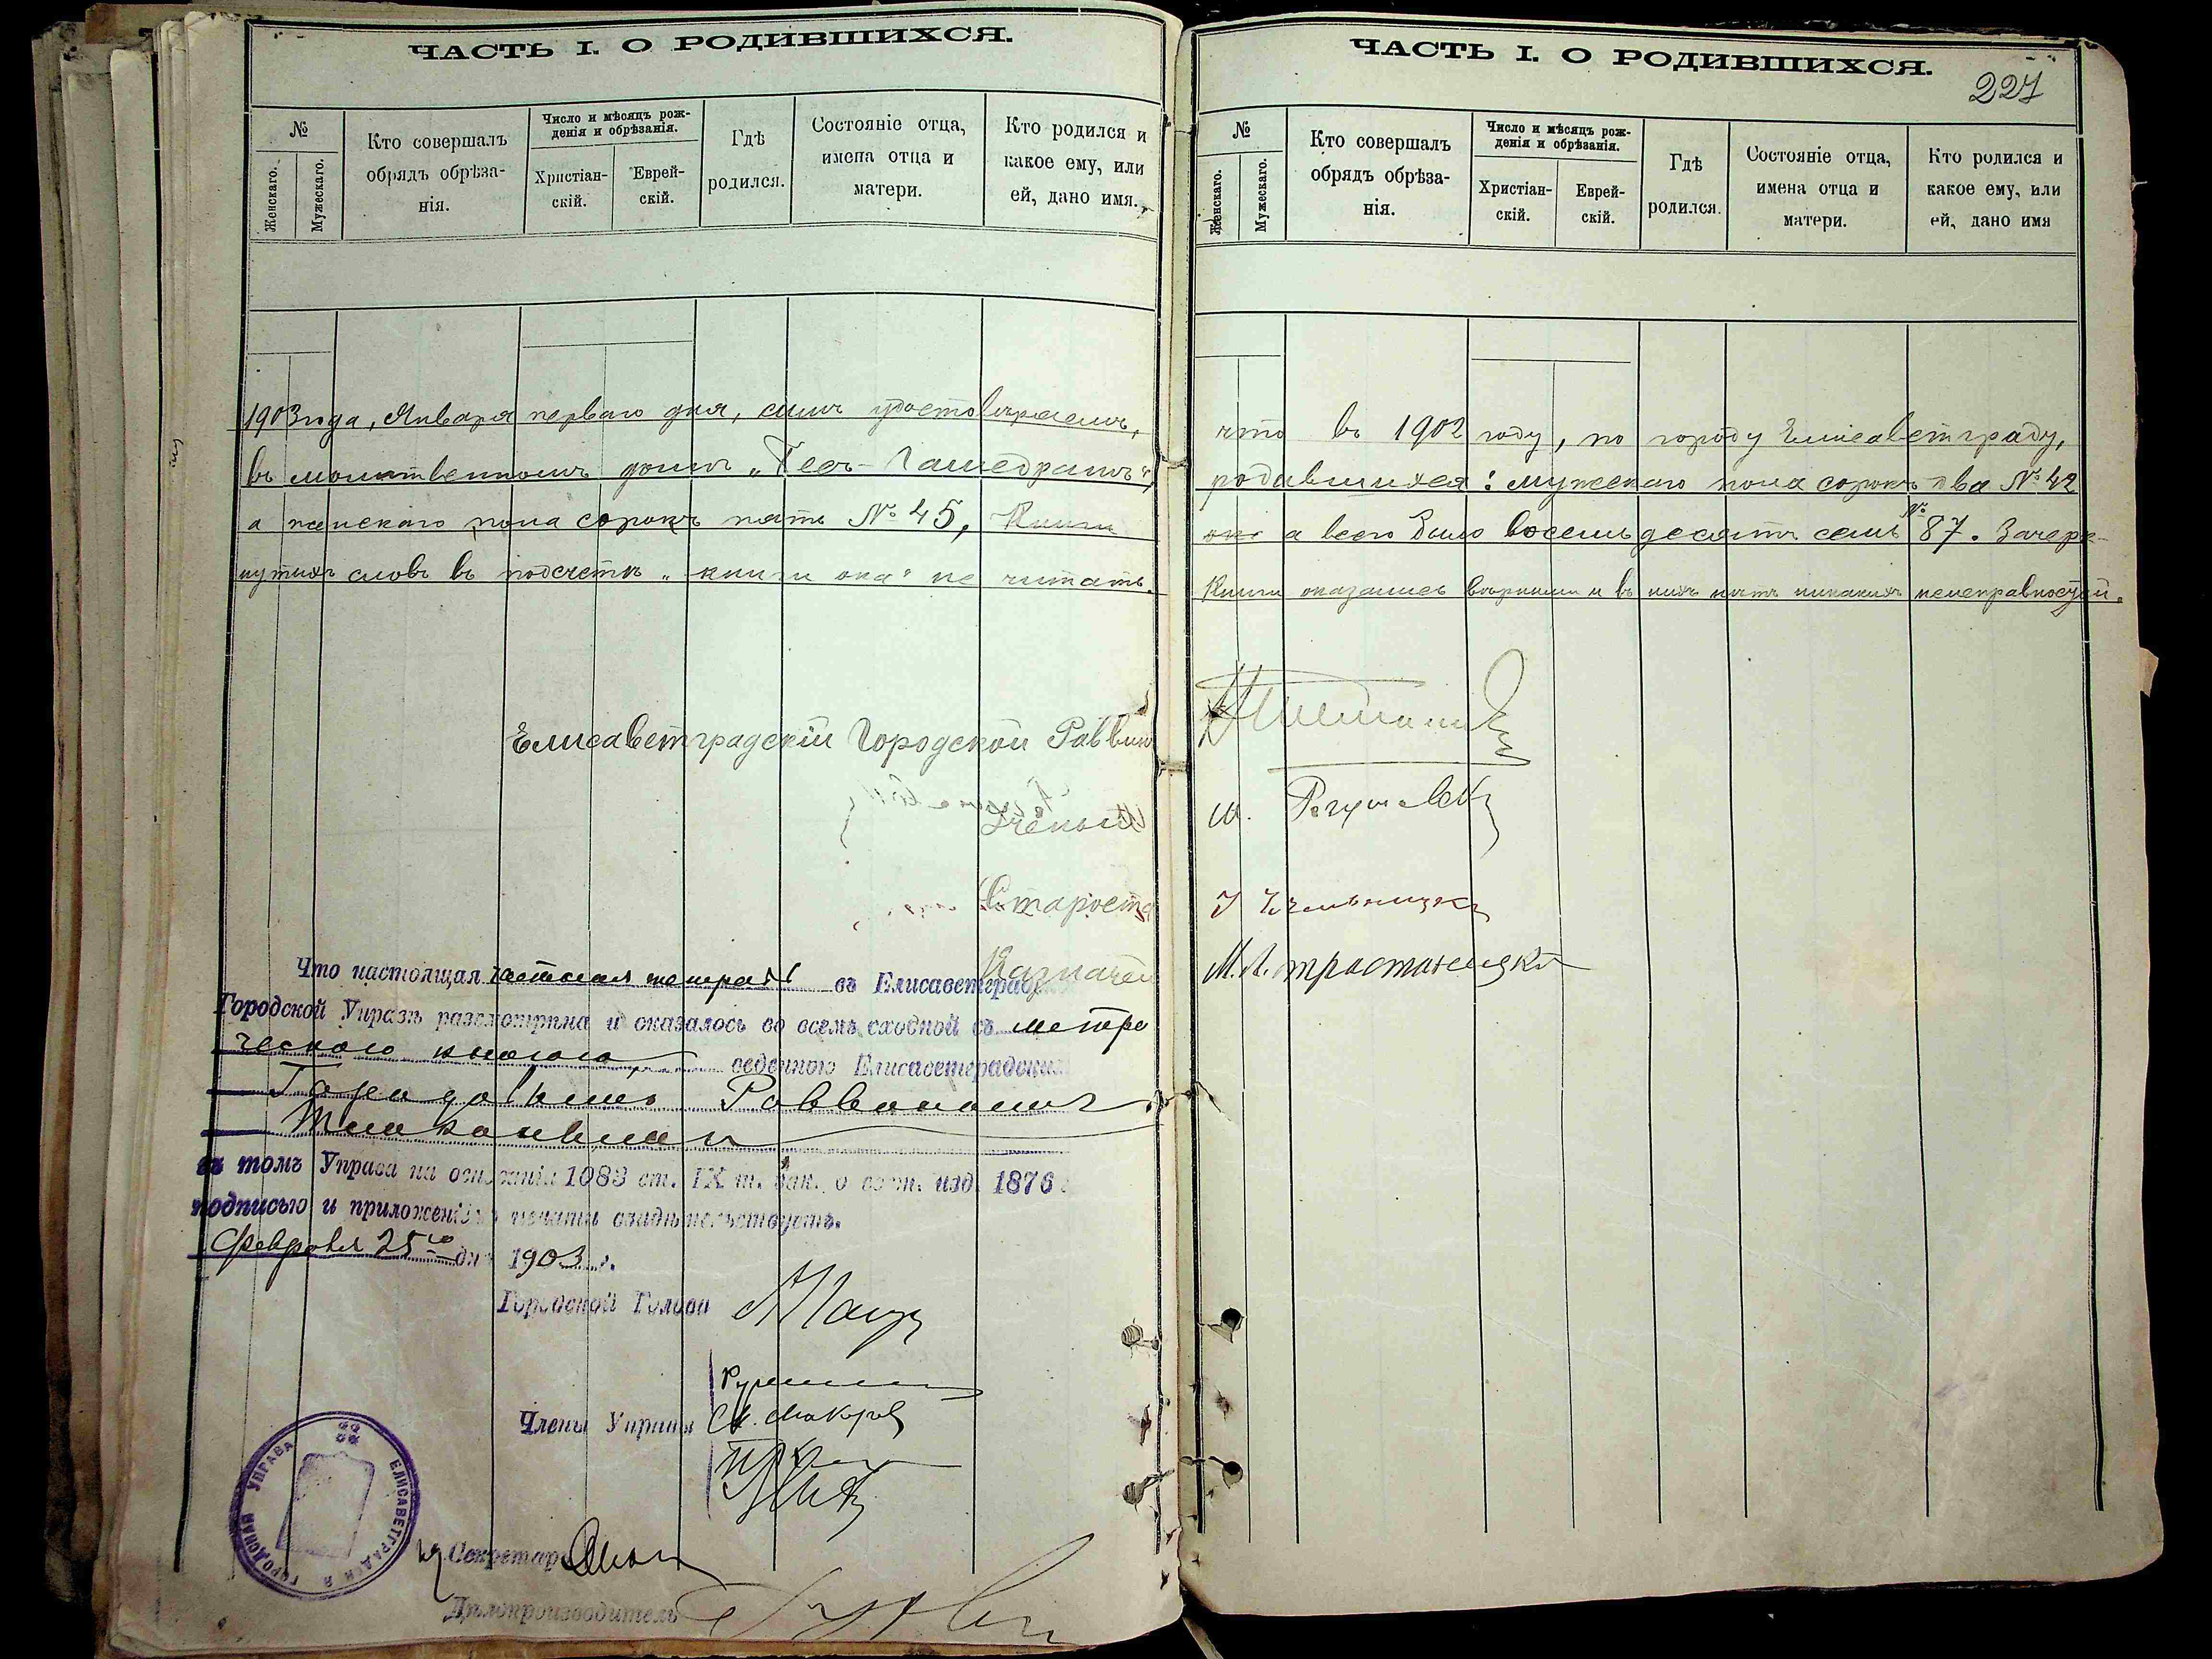 ЧАСТЬ I. О РОДИВШИХСЯ.
№
Женскаго.
Мужескаго.
Кто совершалъ
обрядъ обрѣза-
нія.
Число и мѣсяцъ рож-
денія и обрѣзанія.
Христіан-
скій.
Еврей-
скій.
Гдѣ
родился.
Состояніе отца,
имена отца и
матери.
Кто родился и
какое ему, или
ей, дано имя.
1903 года, Января перваго дня, симъ удостовѣряемъ,
въ молитвенномъ домѣ „Бесъ-Гамедрашъ“,
а женскаго пола сорокъ пять № 45, Книги
нутыхъ словъ въ подсчетѣ „книги ока“ не читать.
Елисаветградскій Городской Раввинъ
Учёный
Староста
Казначей
Что настоящая тетрадь въ Елисаветградской
Городской Управѣ разсмотрѣна и оказалось во всемъ сходной съ метри
ческою книгою
веденною Елисаветградским
Раввиномъ
въ томъ Управа на основаніи 1083 ст. IX т. Зак. о сост. изд. 1876 г.
подписью и приложеніемъ печати свидѣтельствуетъ.
Февраля 25го дня 1903 г.
Городской Голова
Члены Управы
М. Макаров
Секретарь
Дѣлопроизводитель
ЕЛИСАВЕТГРАДСКАЯ ГОРОДСКАЯ УПРАВА
ЧАСТЬ I. О РОДИВШИХСЯ.
227
№
Женскаго.
Мужескаго.
Кто совершалъ
обрядъ обрѣза-
нія.
Число и мѣсяцъ рож-
денія и обрѣзанія.
Христіан-
скій.
Еврей-
скій.
Гдѣ
родился.
Состояніе отца,
имена отца и
матери.
Кто родился и
какое ему, или
ей, дано имя
что въ 1902 году, по городу Елисаветграду,
родившихся: мужескаго пола сорокъ два № 42
ока а всего было восемьдесятъ семь № 87. Зачерк-
Книги оказались вѣрными и въ нихъ нѣтъ никакихъ неисправностей.
М. Л. Тростянецкій